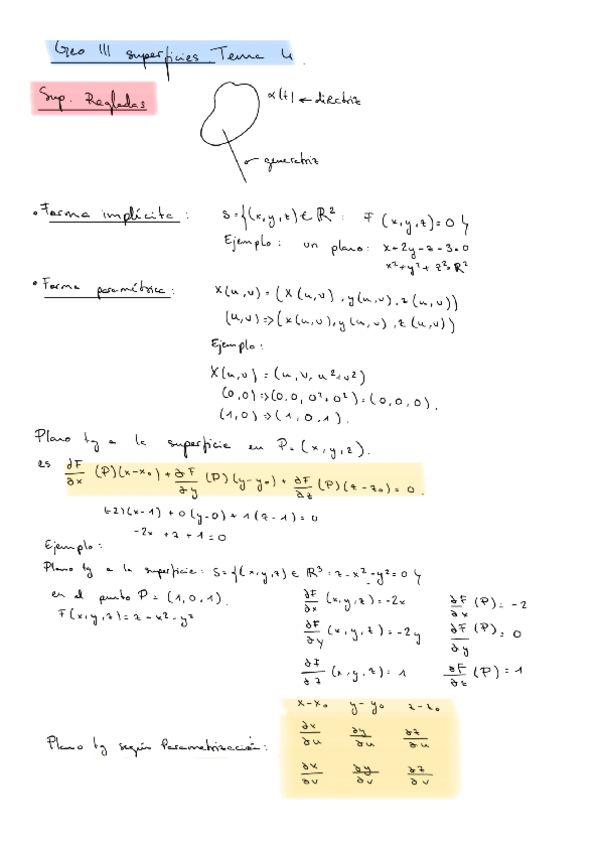 Geo III superficies Tema 4
Sup. Regladas
α(t) ← directriz
generatriz
• Forma implícita :
S={(x,y,z) ∈ R²: F(x,y,z)=0}
Ejemplo: un plano: x+2y-z-3=0
x²+y²+z²=R²
• Forma paramétrica:
X(u,v) = (x(u,v), y(u,v), z(u,v))
(u,v) => (x(u,v), y(u,v), z(u,v))
Ejemplo:
X(u,v) = (u, v, u²+v²)
(0,0) => (0,0,0²+0²) = (0,0,0).
(1,0) => (1,0,1).
Plano tg a la superficie en P=(x,y,z).
es ∂F/∂x (P)(x-x₀) + ∂F/∂y (P)(y-y₀) + ∂F/∂z (P)(z-z₀) = 0.
(-2)(x-1) + 0(y-0) + 1(z-1) = 0
-2x + z + 1 = 0
Ejemplo:
Plano tg a la superficie: S={(x,y,z) ∈ R³: z-x²-y²=0}
en el punto P = (1,0,1).
F(x,y,z) = z-x²-y²
∂F/∂x (x,y,z) = -2x ∂F/∂x (P) = -2
∂F/∂y (x,y,z) = -2y ∂F/∂y (P) = 0
∂F/∂z (x,y,z) = 1 ∂F/∂z (P) = 1
Plano tg según Parametrización:
x-x₀ y-y₀ z-z₀
∂x/∂u ∂y/∂u ∂z/∂u
∂x/∂v ∂y/∂v ∂z/∂v